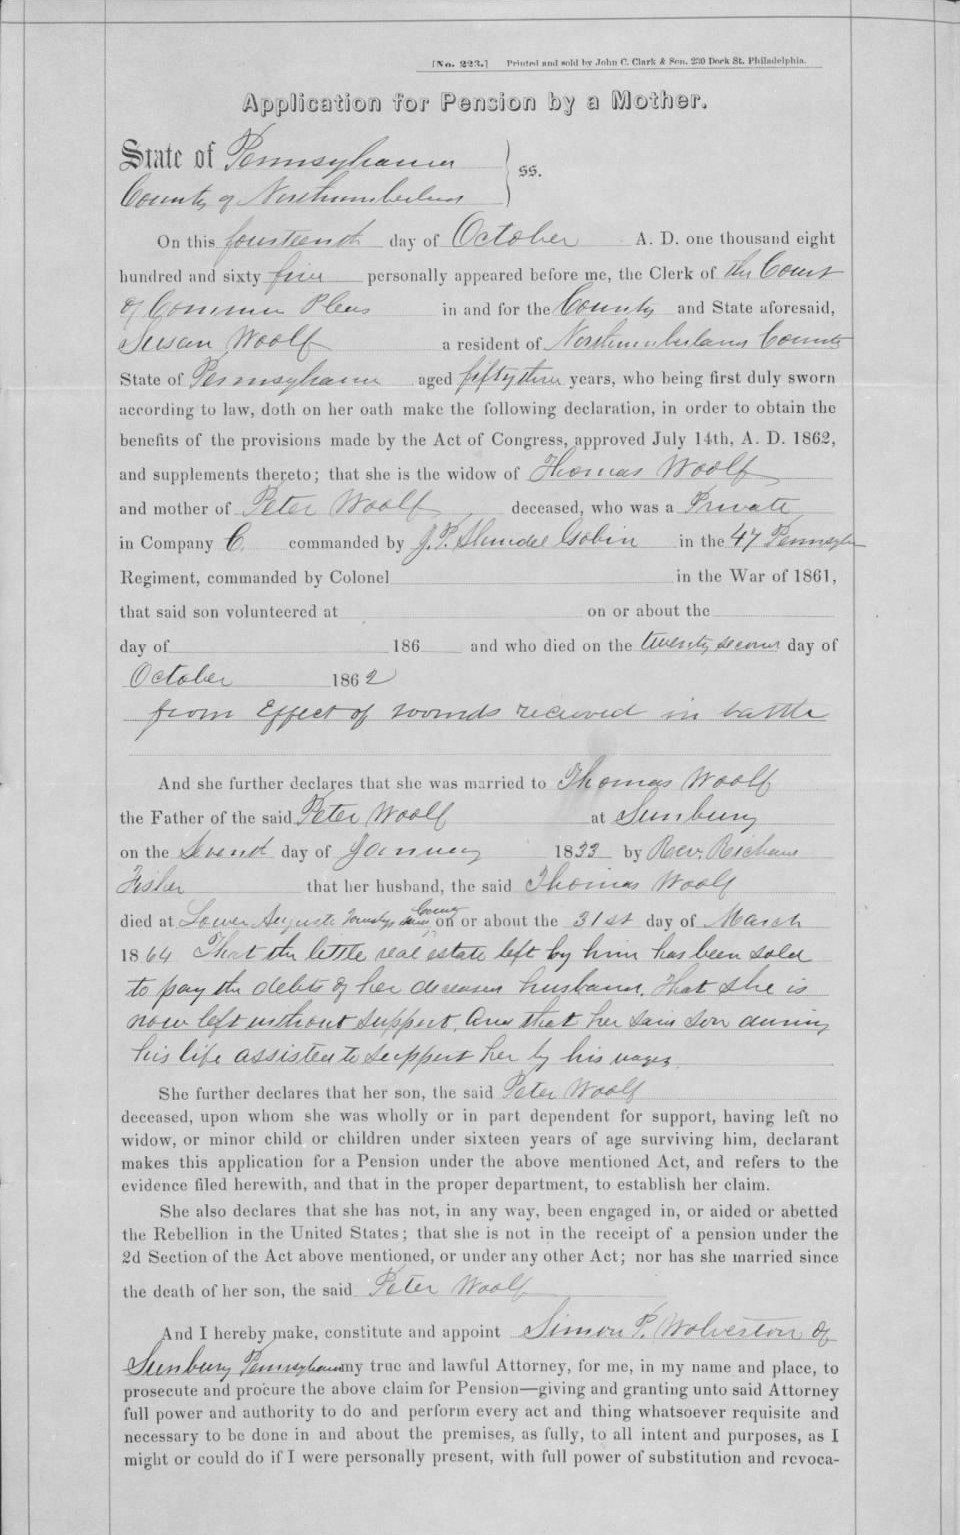 [No. 223.] Printed and sold by John C. Clark & Son, 230 Dock St. Philadelphia.
Application for Pension by a Mother.
State of Pennsylvania
County of Northumberland } ss.
On this fourteenth day of October A. D. one thousand eight
hundred and sixty five personally appeared before me, the Clerk of the Court
of Common Pleas in and for the County and State aforesaid,
Susan Woolf a resident of Northumberland County
State of Pennsylvania aged fifty three years, who being first duly sworn
according to law, doth on her oath make the following declaration, in order to obtain the
benefits of the provisions made by the Act of Congress, approved July 14th, A. D. 1862,
and supplements thereto; that she is the widow of Thomas Woolf
and mother of Peter Woolf deceased, who was a Private
in Company C. commanded by J. P. Shindel Gobin in the 47 Pennsylva
Regiment, commanded by Colonel in the War of 1861,
that said son volunteered at on or about the
day of 186 and who died on the twenty second day of
October 1862
from Effect of wounds received in battle
And she further declares that she was married to Thomas Woolf
the Father of the said Peter Woolf at Sunbury
on the Second day of January 1833 by Rev. Richard
Fisher that her husband, the said Thomas Woolf
died at Lower Augusta Township said County on or about the 31st day of March
1864 That the little real estate left by him has been sold
to pay the debts of her deceased husband. That she is
now left without support. And that her said son during
his life assisted to support her by his wages.
She further declares that her son, the said Peter Woolf
deceased, upon whom she was wholly or in part dependent for support, having left no
widow, or minor child or children under sixteen years of age surviving him, declarant
makes this application for a Pension under the above mentioned Act, and refers to the
evidence filed herewith, and that in the proper department, to establish her claim.
She also declares that she has not, in any way, been engaged in, or aided or abetted
the Rebellion in the United States; that she is not in the receipt of a pension under the
2d Section of the Act above mentioned, or under any other Act; nor has she married since
the death of her son, the said Peter Woolf
And I hereby make, constitute and appoint Simon P. Wolverton of
Sunbury Pennsylvania my true and lawful Attorney, for me, in my name and place, to
prosecute and procure the above claim for Pension—giving and granting unto said Attorney
full power and authority to do and perform every act and thing whatsoever requisite and
necessary to be done in and about the premises, as fully, to all intent and purposes, as I
might or could do if I were personally present, with full power of substitution and revoca-